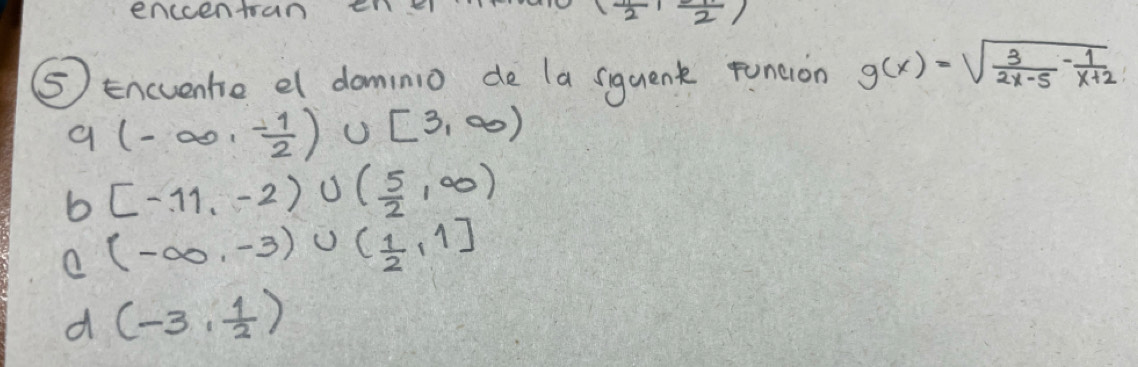 enccentran en el (π/2, /2)
⑤ Encuentre el dominio de la siguente función g(x) = √(3/(2x-5) - 1/(x+2))
a (-∞, -1/2) ∪ [3, ∞)
b [-11, -2) ∪ (5/2, ∞)
c (-∞, -3) ∪ (1/2, 1]
d (-3, 1/2)